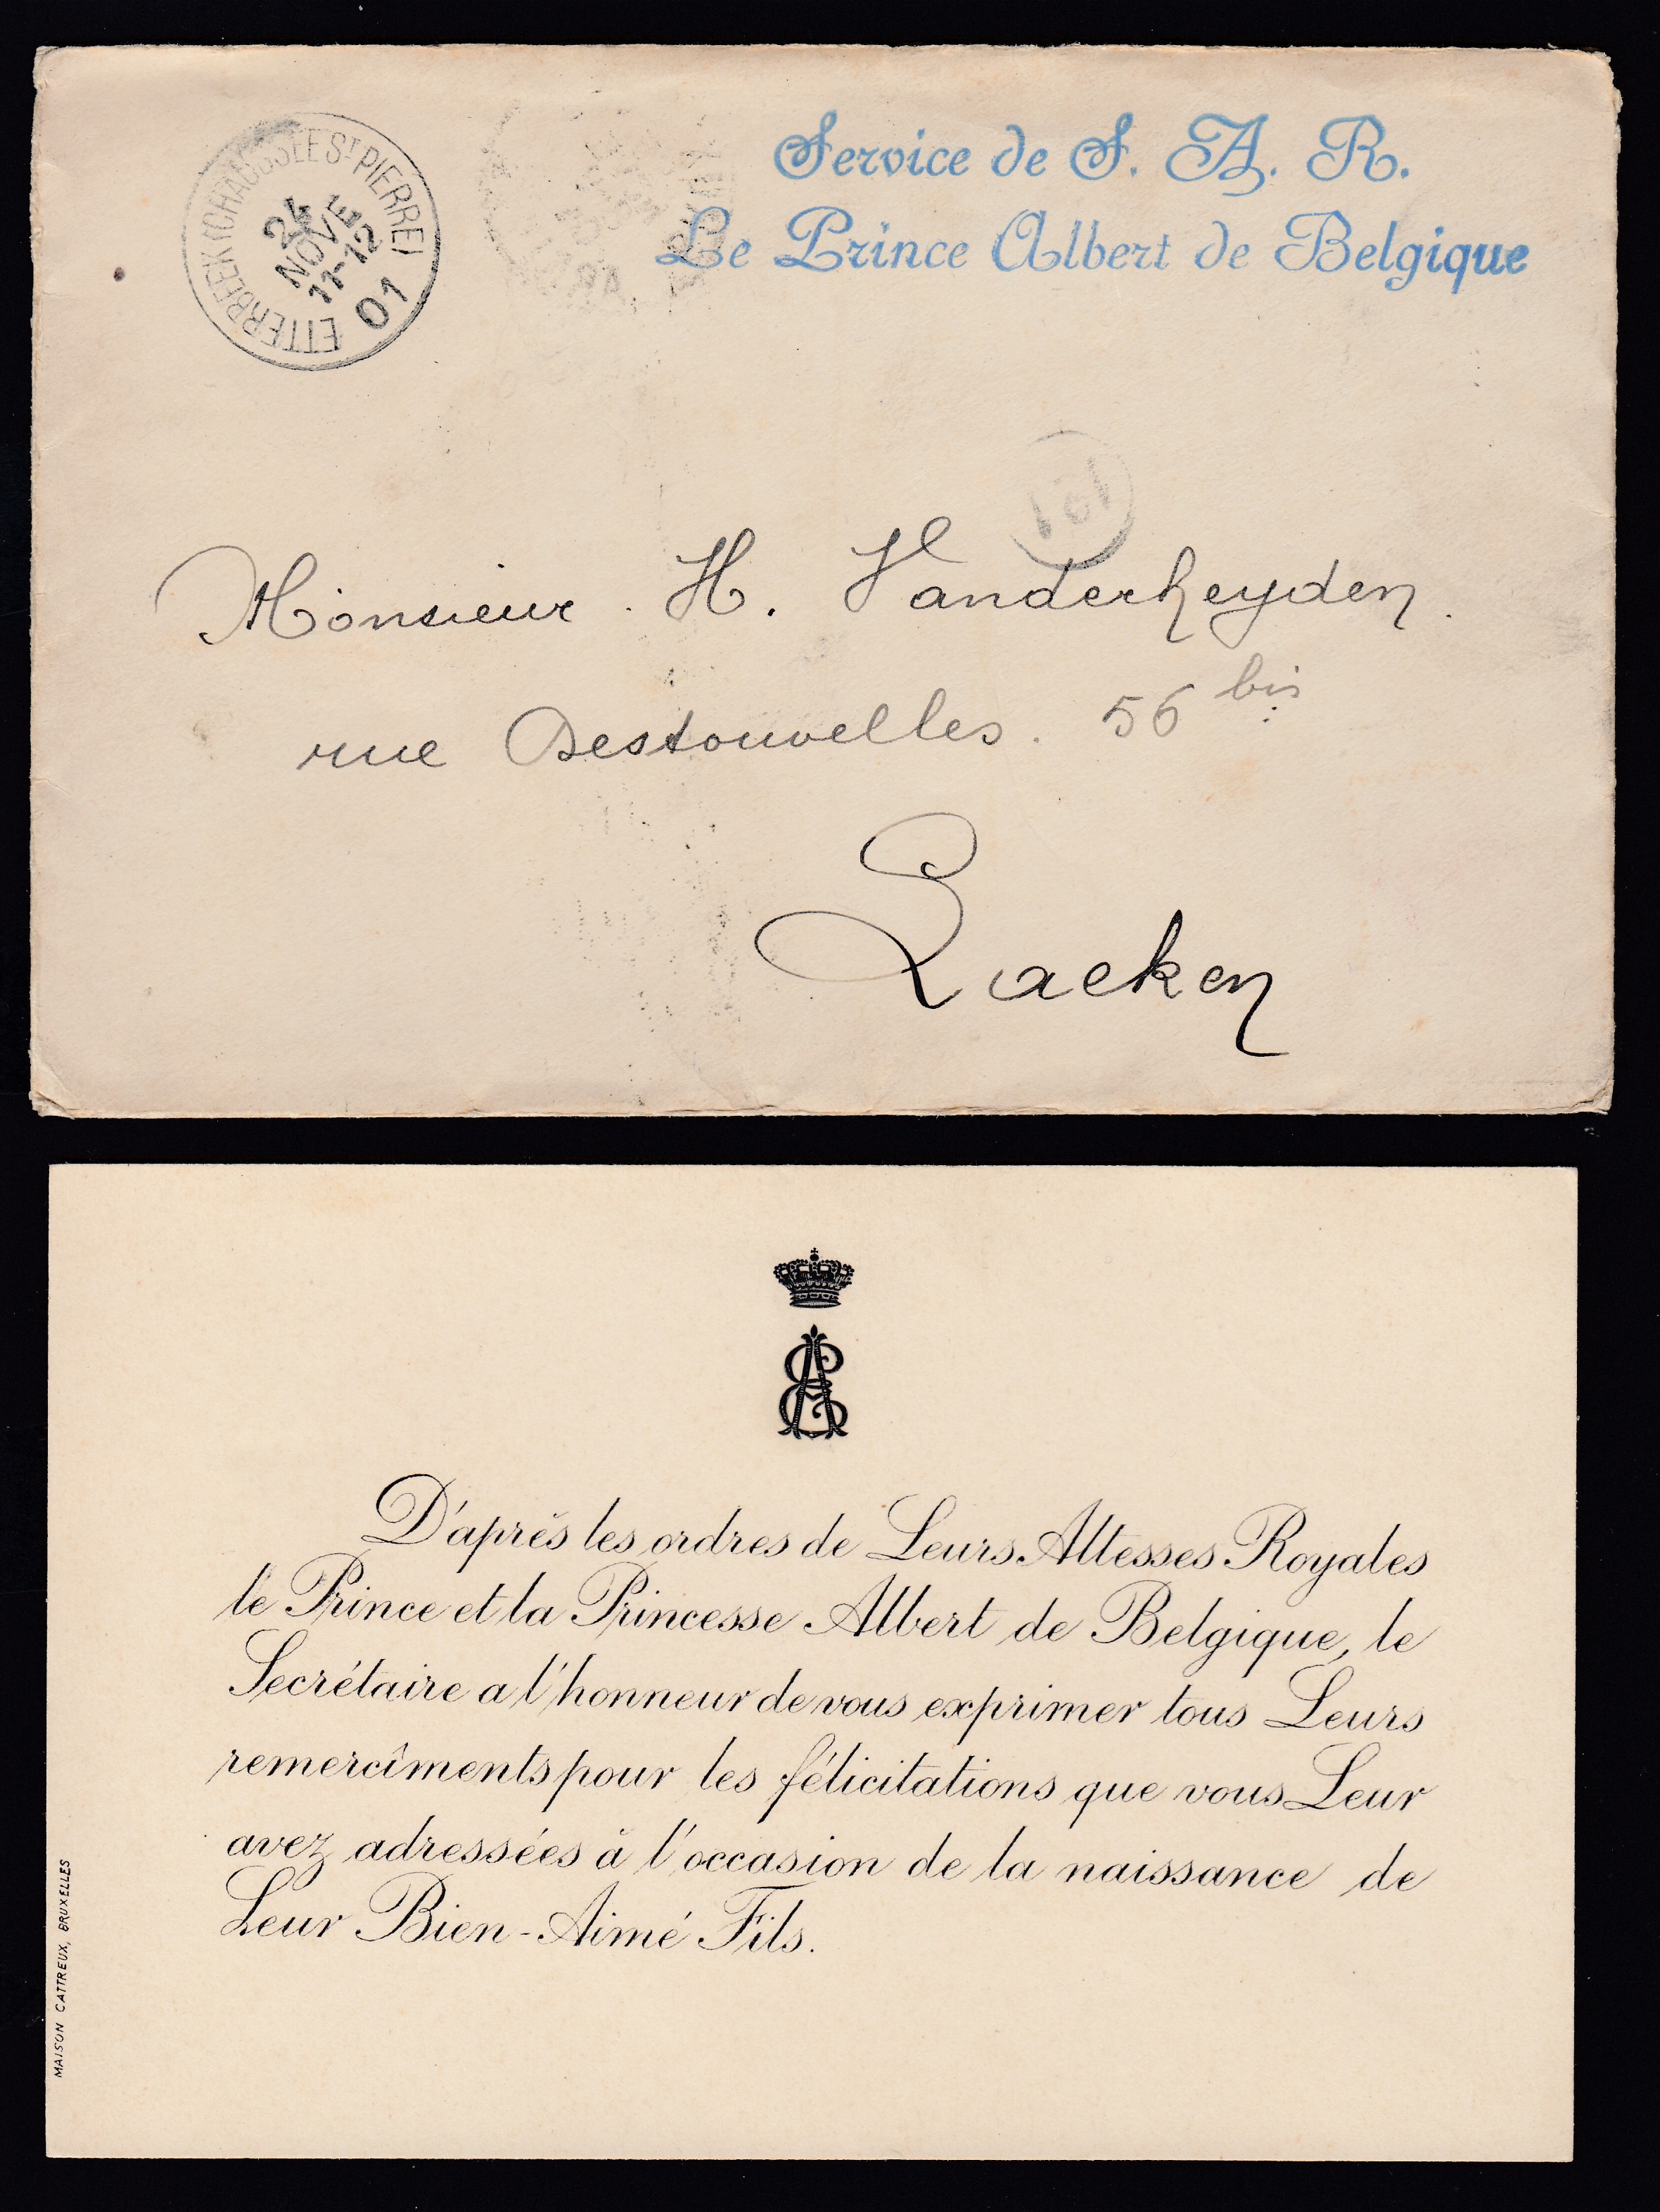 Service de S. A. R.
Le Prince Albert de Belgique
ETTERBEEK (CHAUSSÉE ST PIERRE)
24
NOVE
11-12
01
Monsieur H. Vanderheyden.
rue Destouvelles. 56 bis
Laeken
D'après les ordres de Leurs Altesses Royales
le Prince et la Princesse Albert de Belgique, le
Secrétaire a l'honneur de vous exprimer tous Leurs
remercîments pour les félicitations que vous Leur
avez adressées à l'occasion de la naissance de
Leur Bien-Aimé Fils.
MAISON CATTREUX, BRUXELLES